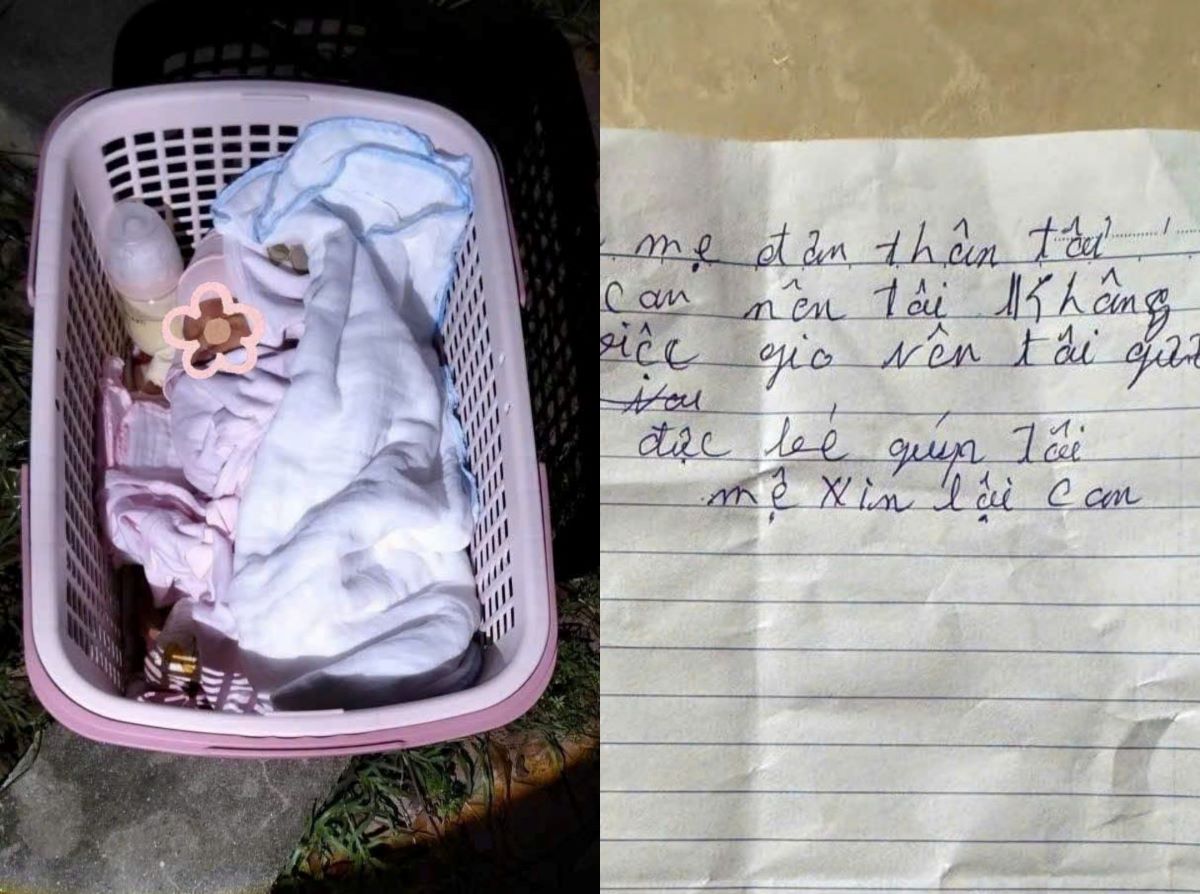 mẹ đơn thân tôi
con nên tôi không
việc gio nên tôi gửi
đực bé giúp tôi
mẹ xin lỗi con